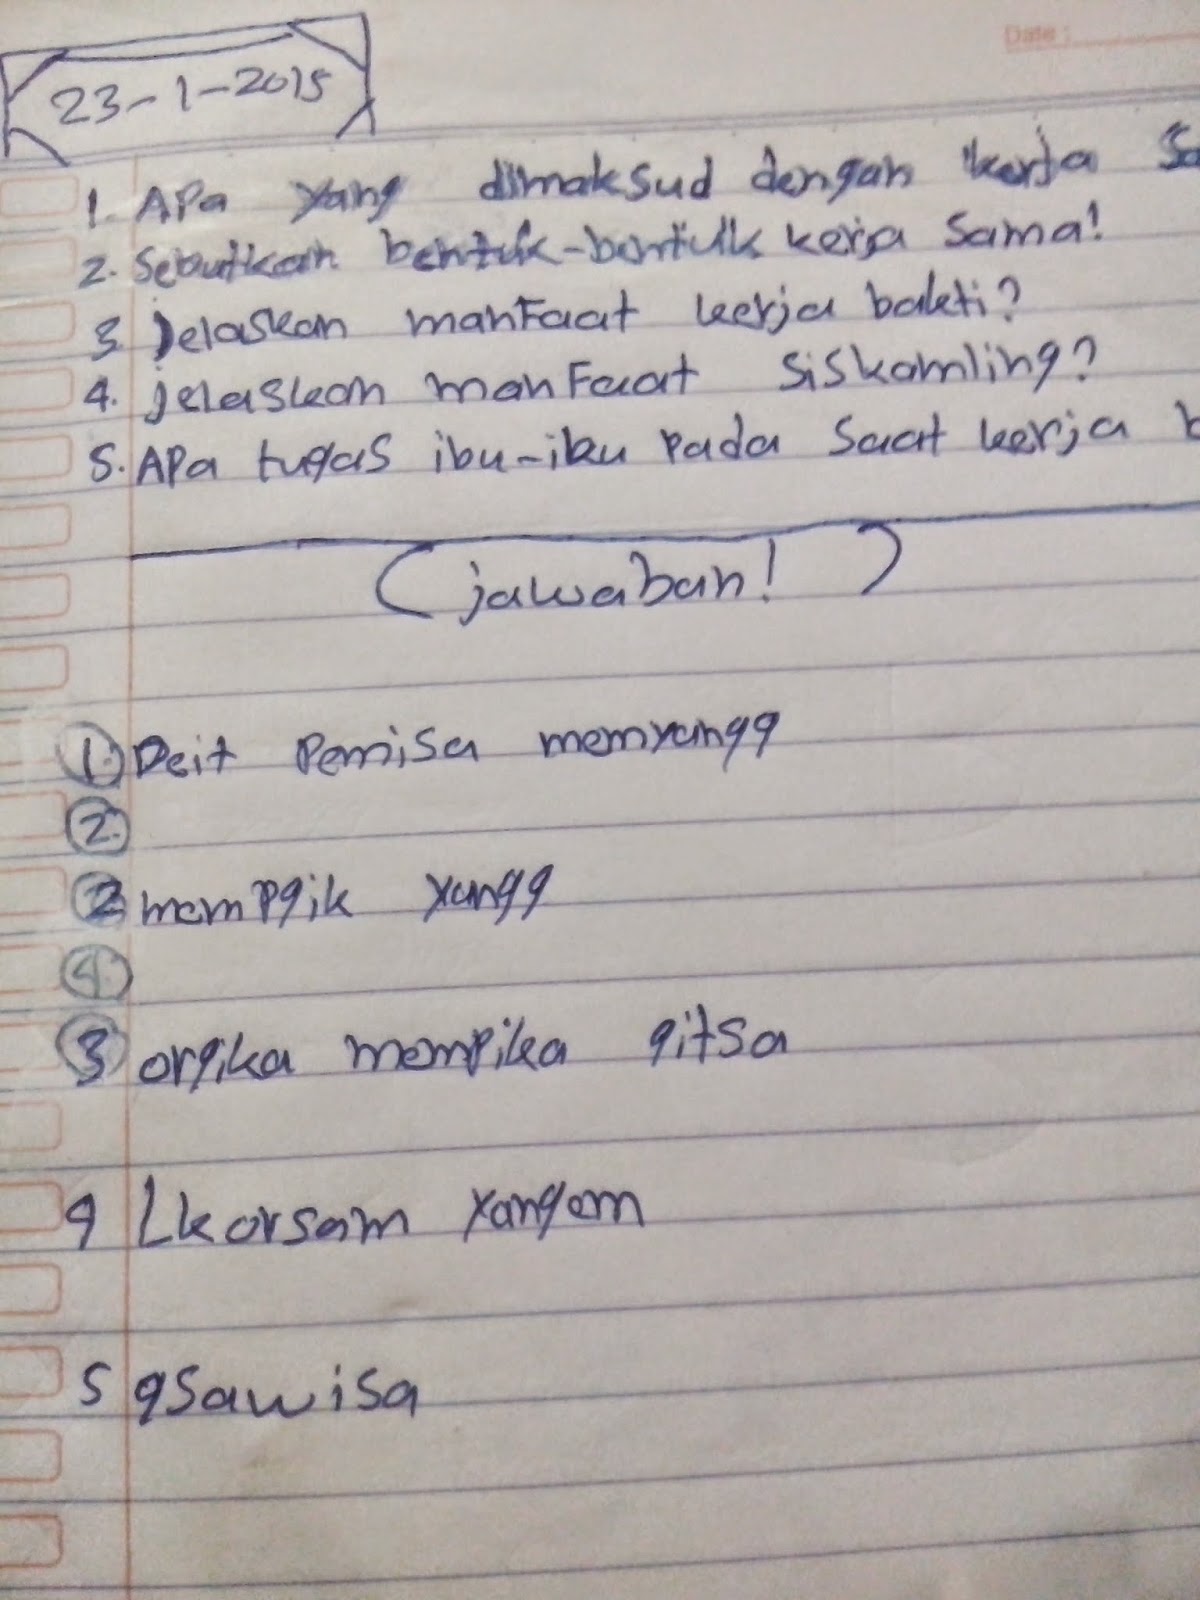 Date :
23-1-2015
1. APa yang dimaksud dengan kerja Sa
2. Sebutkan bentuk-bentuk kerja Sama!
3. Jelaskan manFaat kerja bakti?
4. jelaskan manFaat Siskamling?
5. APa tugas ibu-ibu Pada Saat kerja b
(jawaban!)
1. Deit Pemisa memyangg
2.
2. memPgik yangg
4.
3 orgika mempika gitsa
4 Lkorsam yangem
5 gsawisa